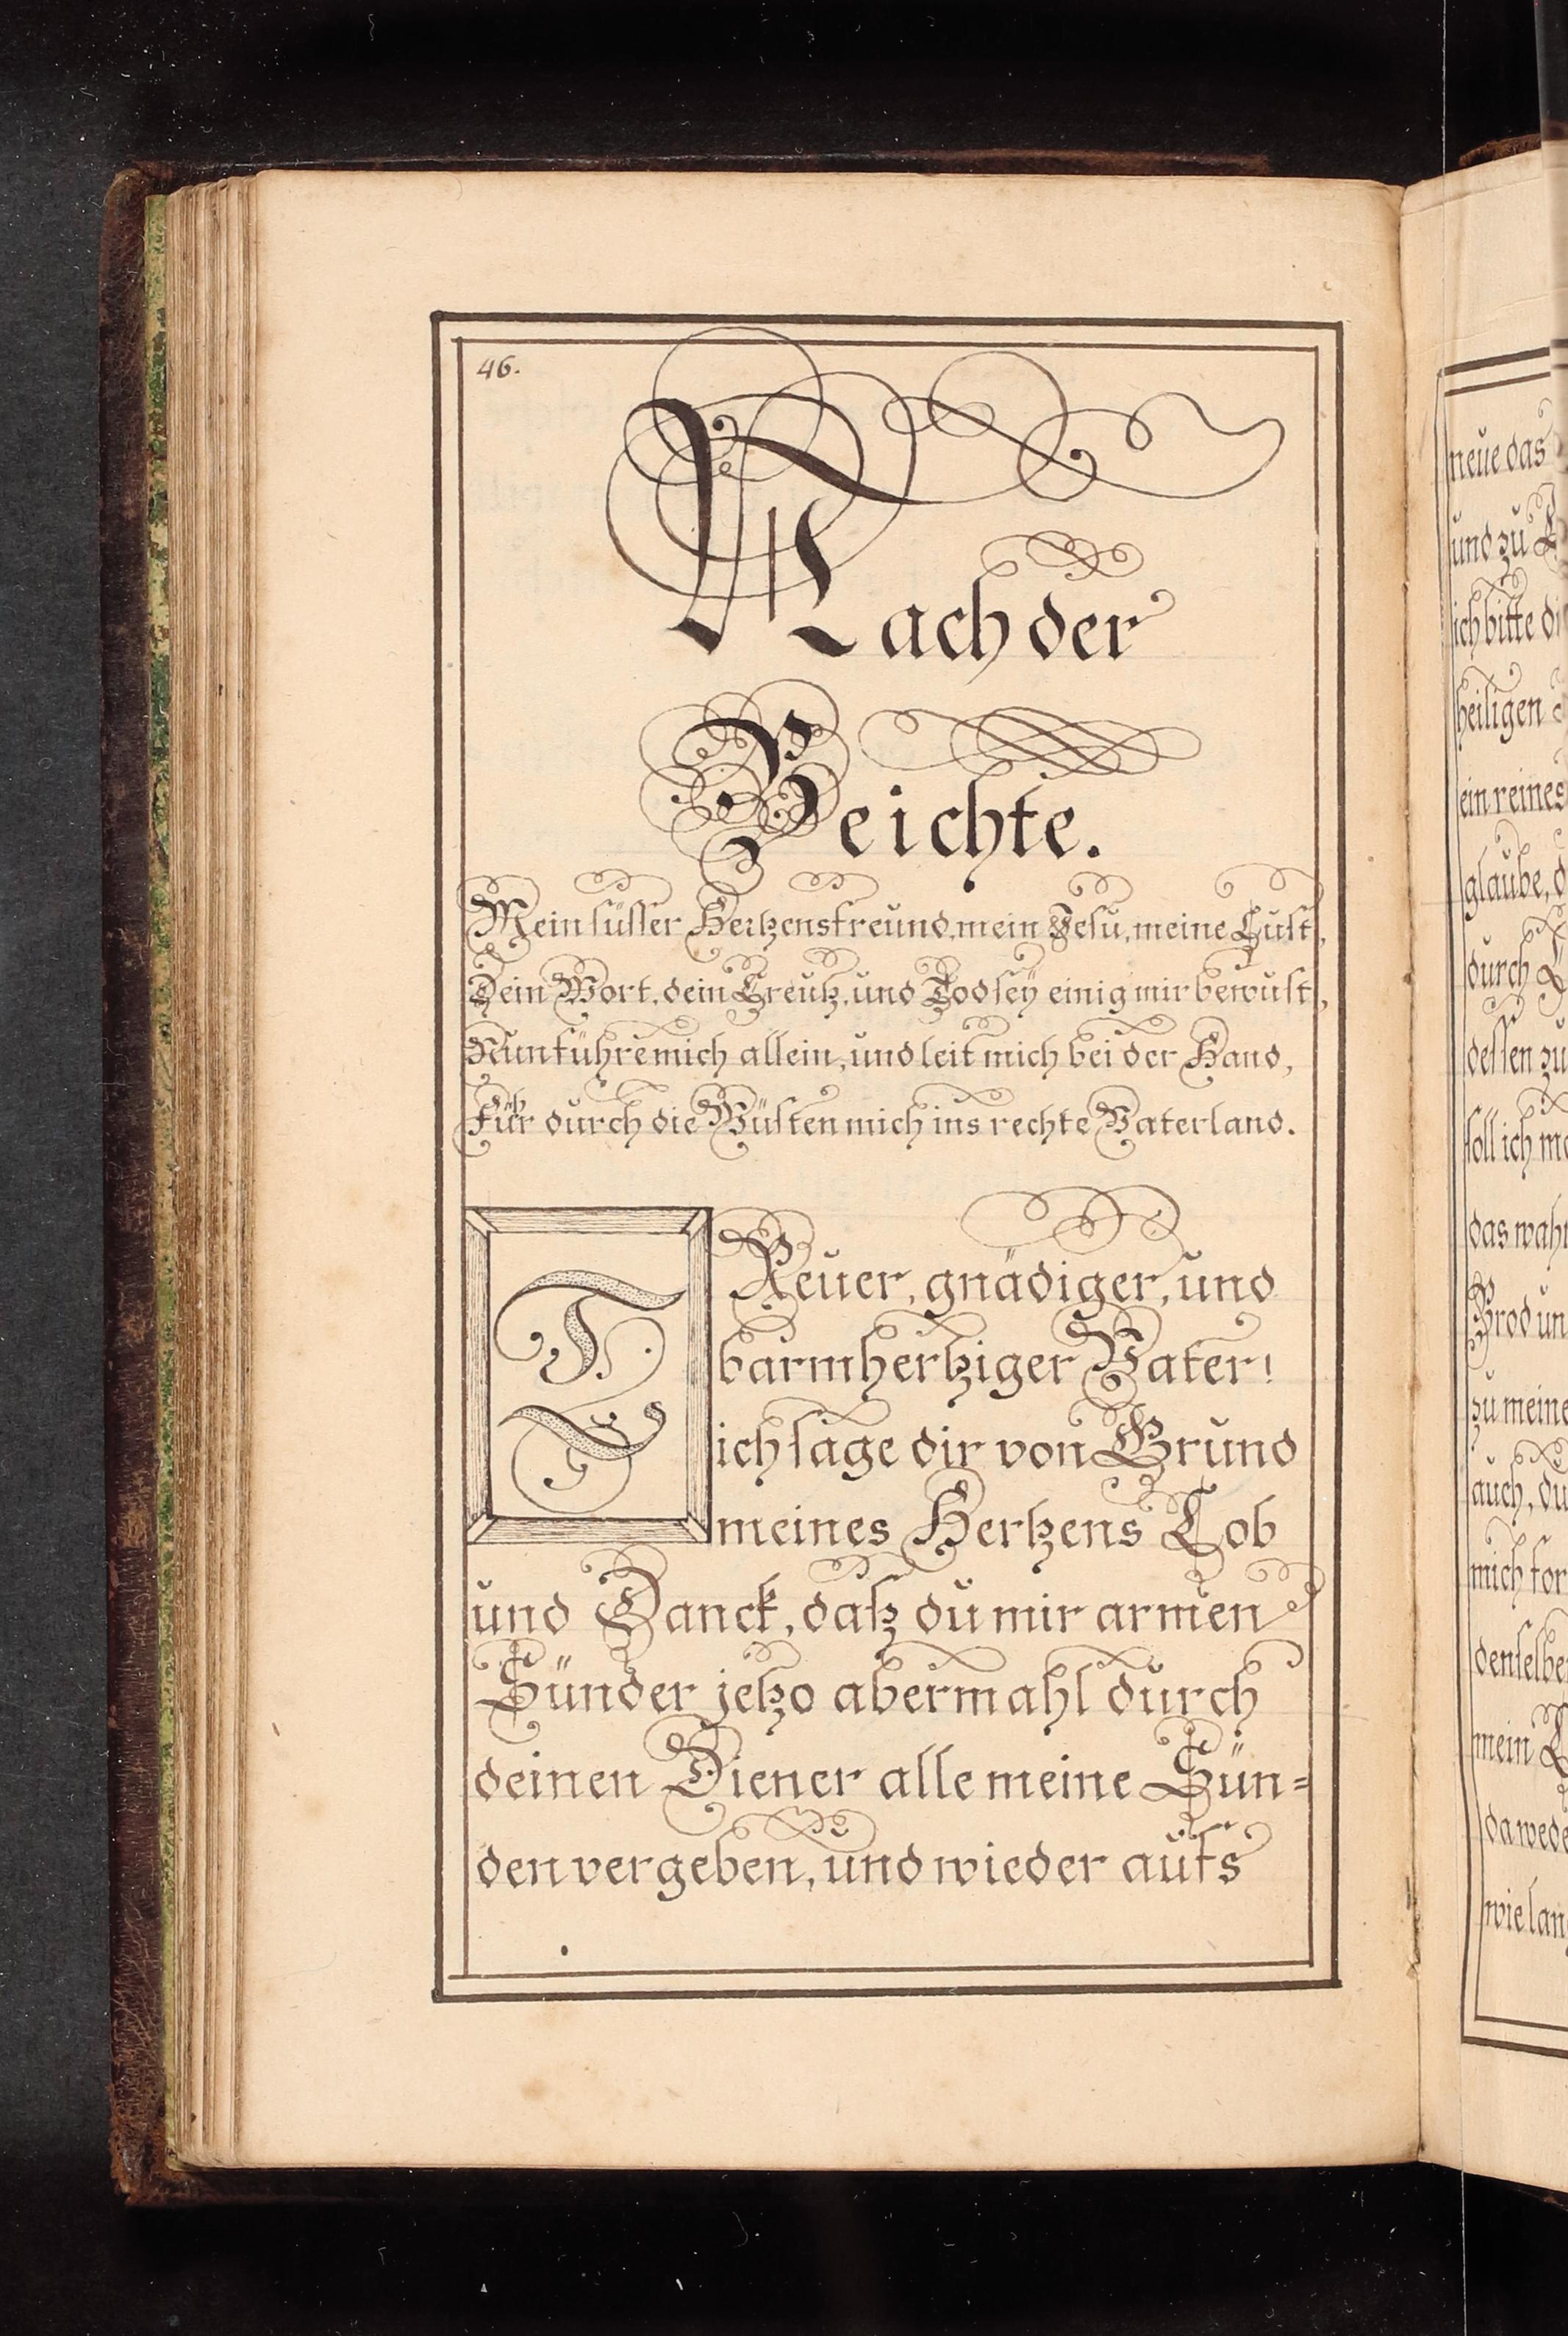 46.
Nach der
Beichte.
Mein süsser Hertzensfreund, mein Jesu, meine Lust,
Dein Wort, dein Creutz, und Tod seÿ einig mir bewust,
Nun führe mich allein, und leit mich bei der Hand,
Führ durch die Wüsten mich ins rechte Vaterland.
TReuer, gnädiger, und
barmhertziger Vater!
ich sage dir von Grund
meines Hertzens Lob
und Danck, daß du mir armen
Sünder jetzo abermahl durch
deinen Diener alle meine Sün=
den vergeben, und wieder aufs
neue das
und zu
ich bitte
heiligen
ein reines
glaube,
durch
dessen zu
soll ich
das
Brod
zu
auch, du
mich
mein
wie